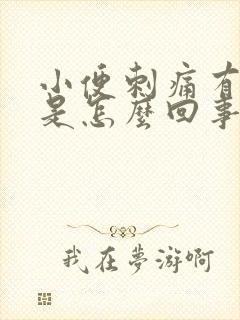 小便刺痛有
是怎麼回事
我在夢游啊